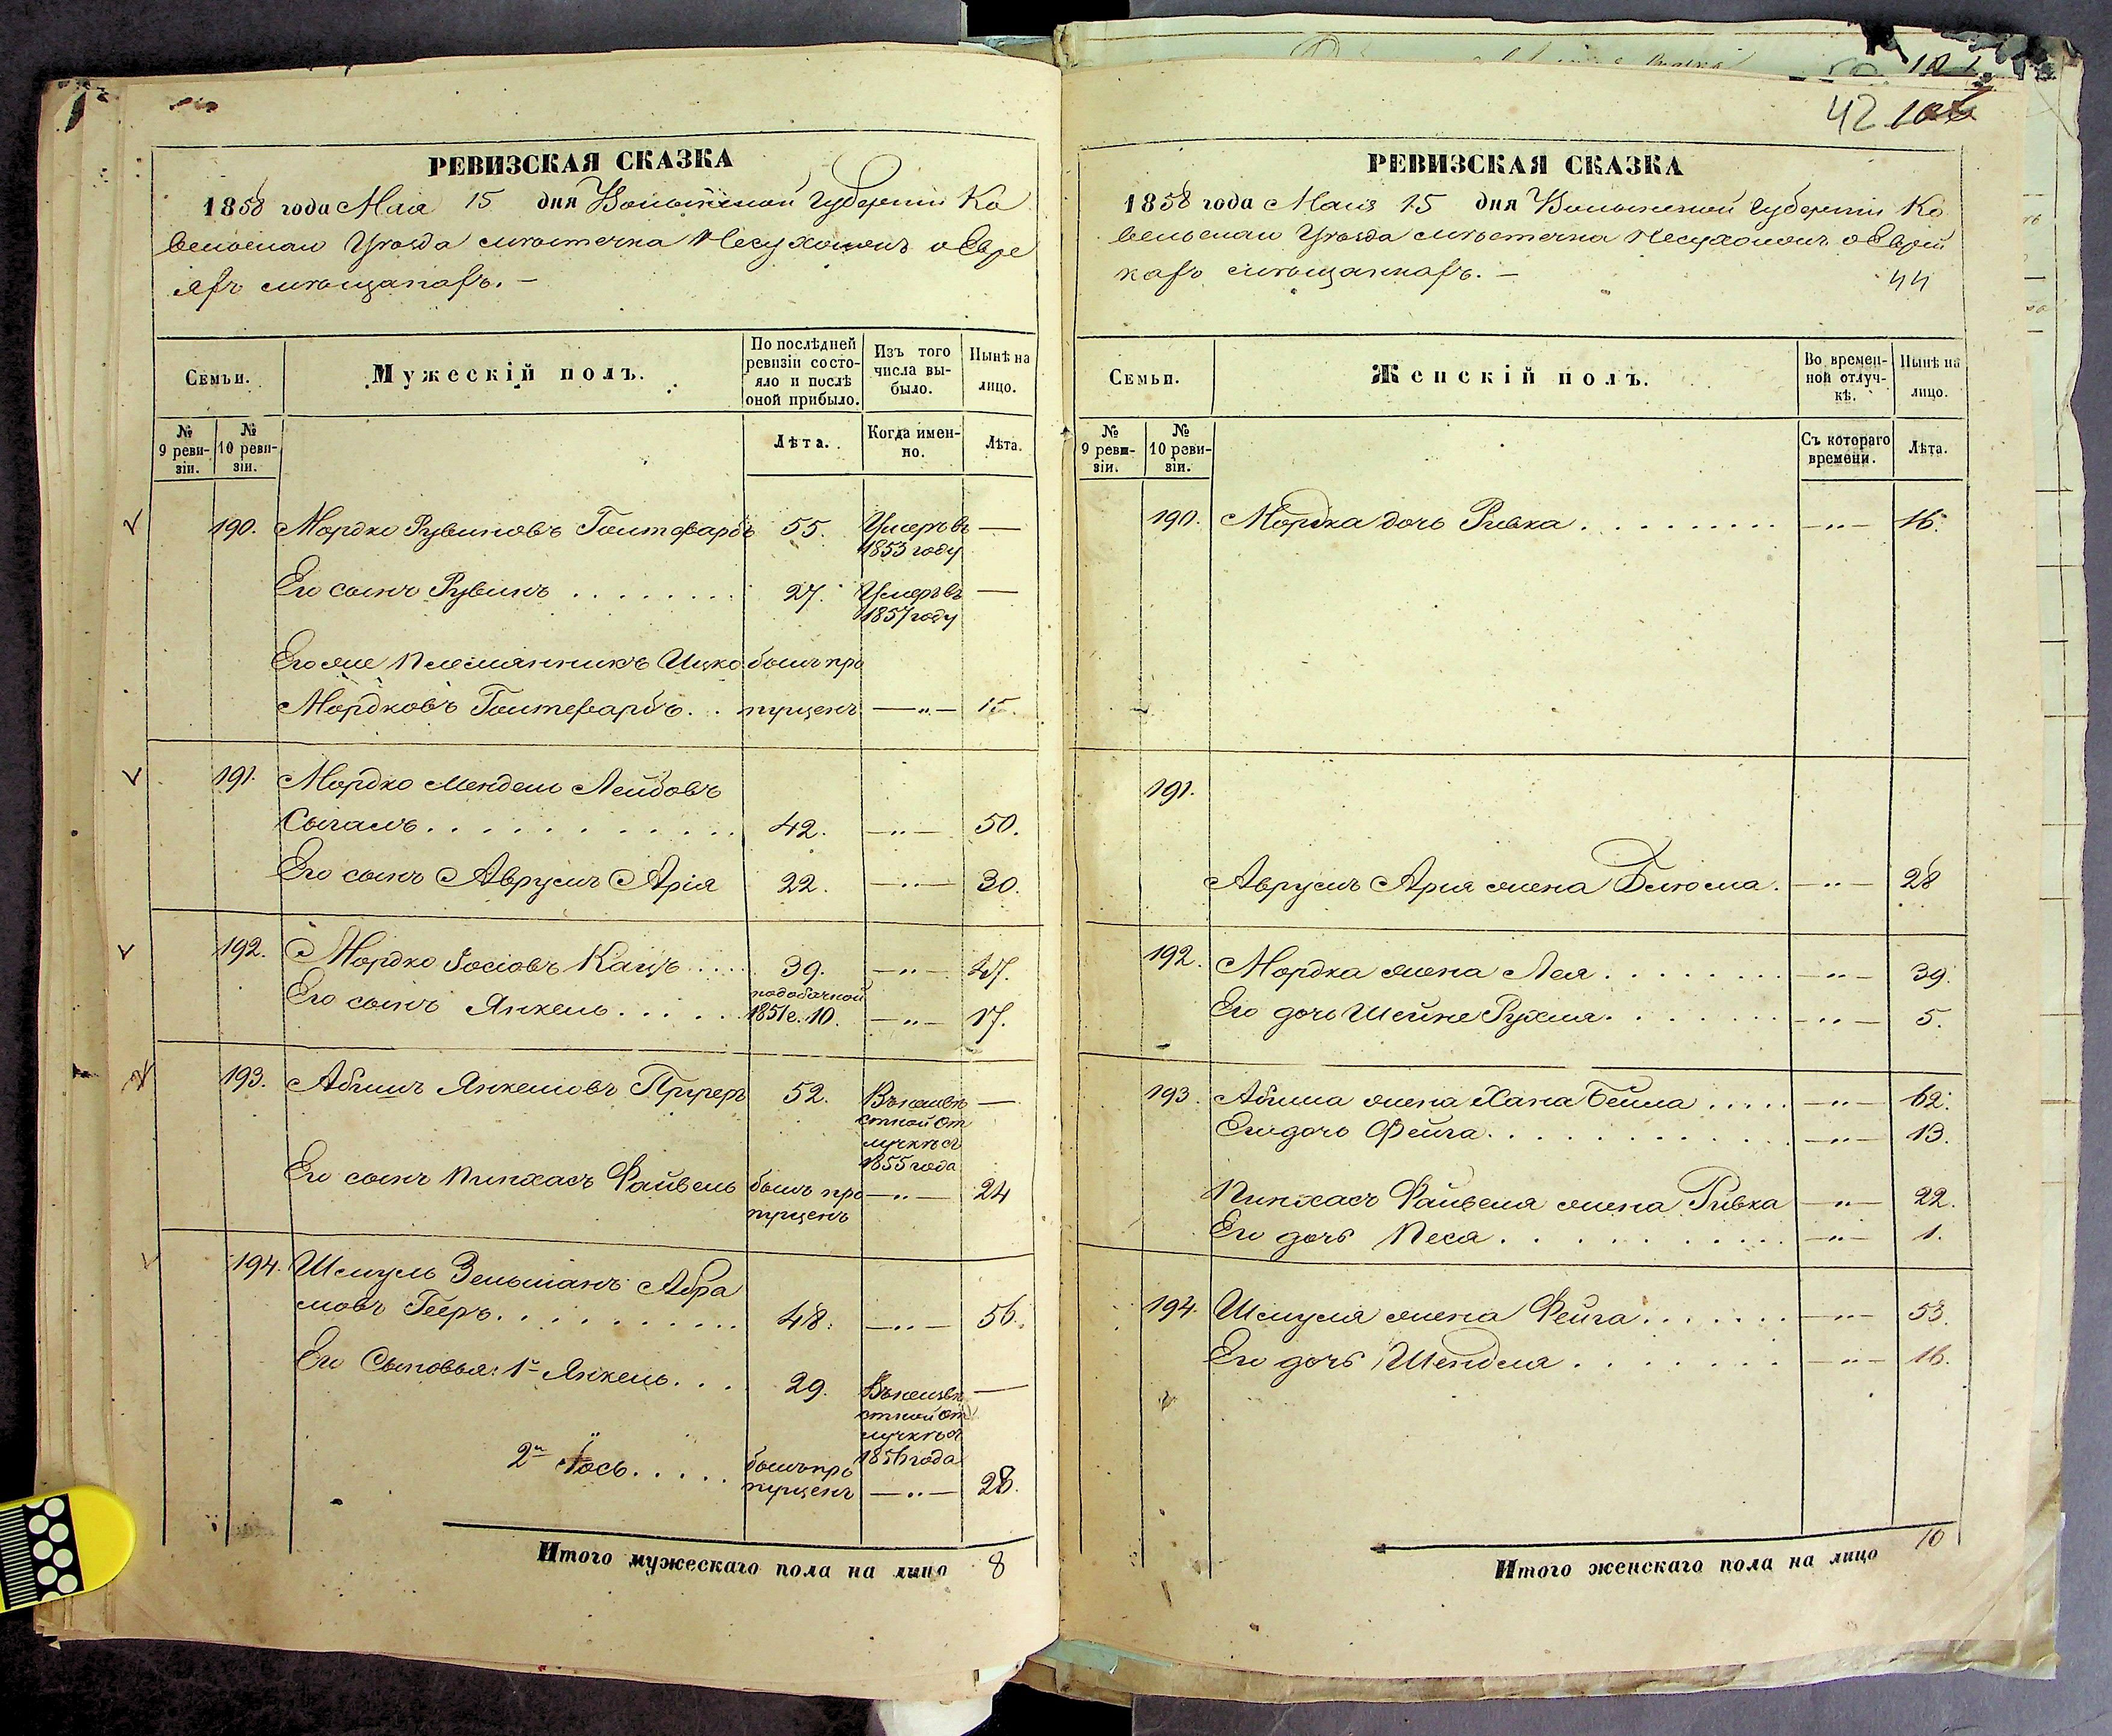 42
РЕВИЗСКАЯ СКАЗКА
1858 года Мая 15 дня Волынской Губернiи Ко
вельскаго Уѣзда мѣстечка Несухоижъ о Евре
яхъ мѣщанахъ.
Семьи.
Мужескій полъ.
По послѣдней ревизіи состояло и послѣ оной прибыло.
Изъ того числа выбыло.
Нынѣ на лицо.
№ 9 ревизіи.
№ 10 ревизіи.
Лѣта.
Когда именно.
Лѣта.
190. Мордко Рувиновъ Голтфарбъ 55. Умеръ въ 1853 году —
Его сынъ Рувинъ 27. Умеръ въ 1857 году —
Его же племянникъ Ицко былъ про
Мордковъ Голтфарбъ пущенъ — " — 15.
191. Мордко Мендель Лейбовъ
Сыгалъ 42. — " — 50.
Его сынъ Аврумъ Арія 22. — " — 30.
192. Мордко Іосіовъ Кацъ 39. — " — 47.
Его сынъ Янкель по добавочной 1851 г. 10. — " — 17.
193. Абишъ Янкелiовъ 52. Въ неизвѣстной отлучкѣ съ 1855 года —
Его сынъ Пинхасъ Файвель былъ пропущенъ — " — 24
194. Шмуль Зельманъ Абра
мовъ Гееръ 48. — " — 56.
Его Сыновья: 1й Янкель 29. Въ неизвѣстной отлучкѣ съ 1856 года —
2й Іось былъ пропущенъ — " — 28.
Итого мужескаго пола на лицо 8
РЕВИЗСКАЯ СКАЗКА
1858 года Мая 15 дня Волынской Губернiи Ко
вельскаго Уѣзда мѣстечка Несухоижъ о Еврей
кахъ мѣщанкахъ.
44
Семьи.
Женскій полъ.
Во временной отлучкѣ.
Нынѣ на лицо.
№ 9 ревизіи.
№ 10 ревизіи.
Съ котораго времени.
Лѣта.
190. Мордка дочь Ривка — " — 16.
191.
Аврумъ Арія жена Блюма — " — 28
192. Мордка жена Лея — " — 39.
Его дочь Шейне Рухля — " — 5.
193. Абиша жена Хана Бейла — " — 62.
Его дочь Фейга — " — 13.
Пинхасъ Файвеля жена Ривка — " — 22.
Его дочь Песя — " — 1.
194. Шмуля жена Фейга — " — 53.
Его дочь Шендля — " — 16.
Итого женскаго пола на лицо 10